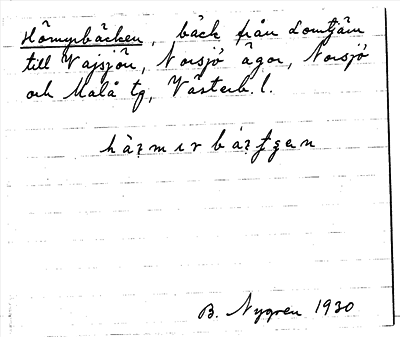 Hömyrbäcken, bäck från Lomtjärn
till Vajsjön, Norsjö ägor, Norsjö
och Malå tg, Västerb. l.
B. Nygren 1930